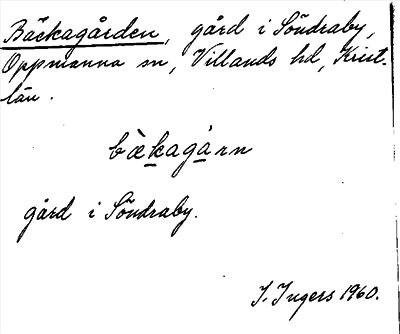 Bäckagården, gård i Söndraby,
Oppmanna sn, Villands hd, Krist.
län.
bèkagårn
gård i Söndraby.
I. Ingers 1960.